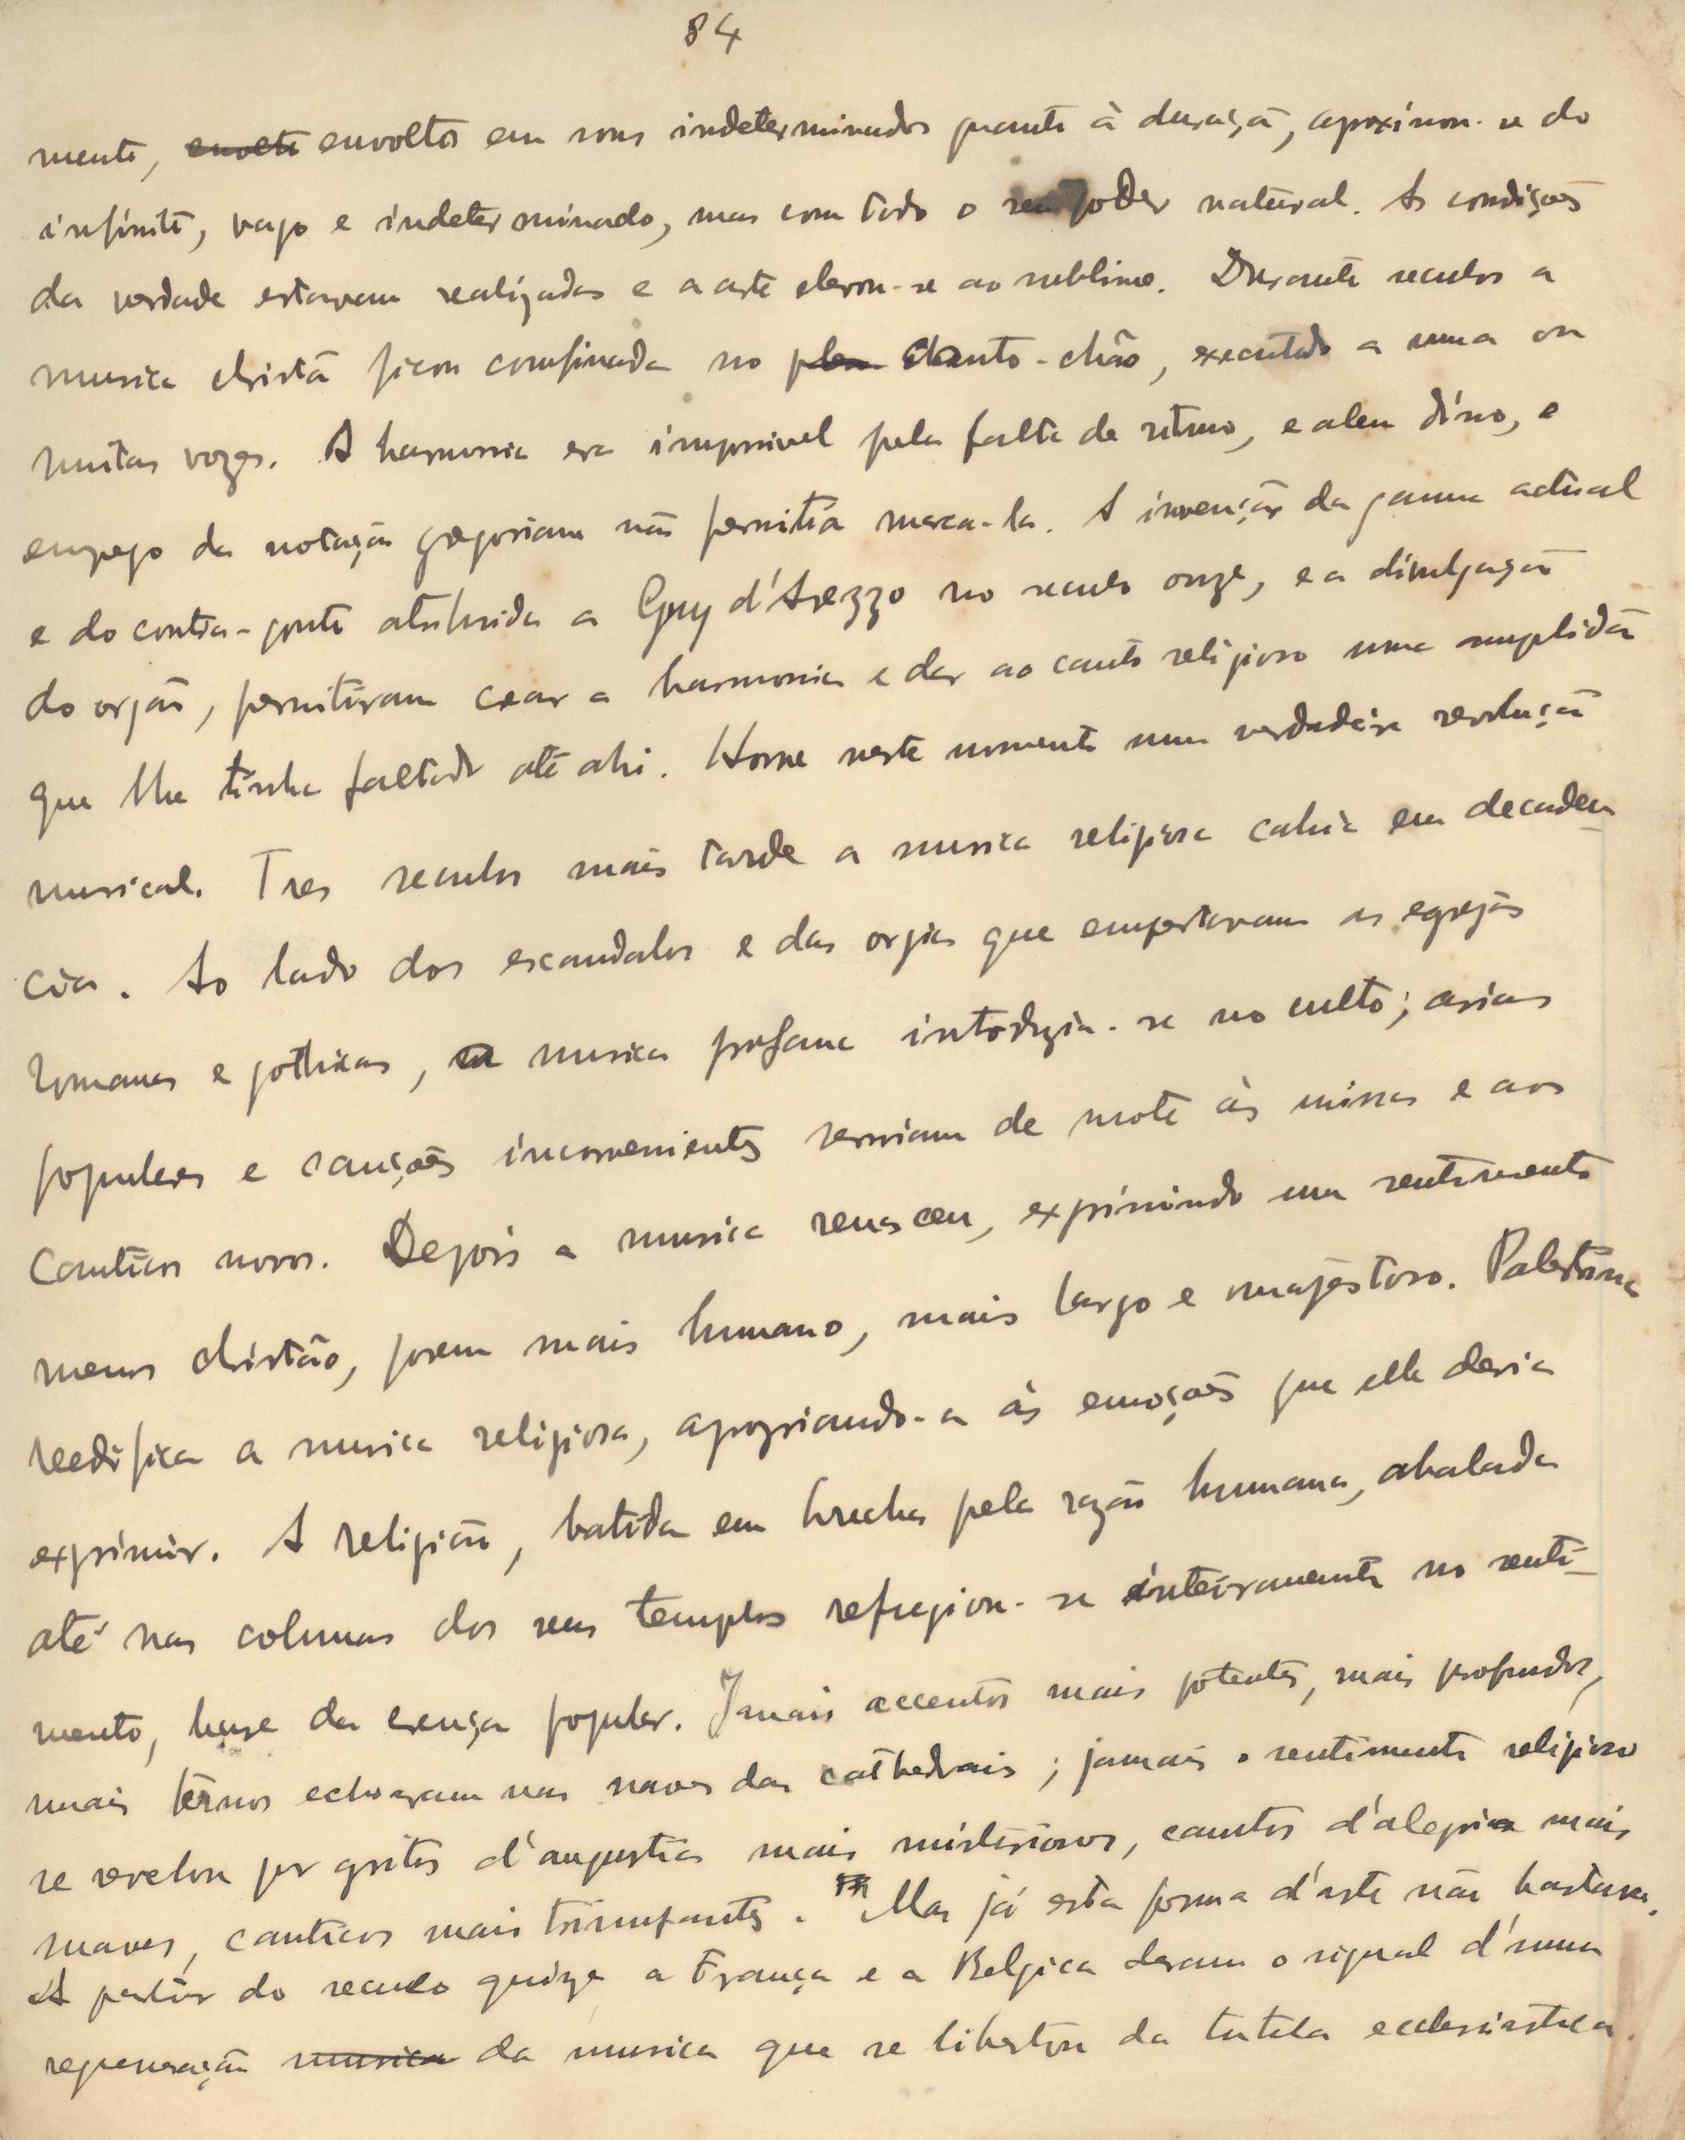 84
mente, envolto envoltos em sons indeterminados quanto à duração, aproximou-se do
infinito, vago e indeterminado, mas com todo o seu poder natural. As condições
da verdade estavam realizadas e a arte elevou-se ao sublime. Durante seculos a
musica christã ficou confinada no plan canto-chão, executado a uma ou
muitas vozes. A harmonia era impossivel pela falta de ritmo, e alem d'isso, o
emprego da notação gregoriana não permitia marca-la. A invenção da gamma actual
e do contra-ponto atribuida a Guy d'Arezzo no seculo onze, e a divulgação
do orgão, permitiram crear a harmonia e dar ao canto religioso uma amplidão
que lhe tinha faltado até ahi. Houve neste momento uma verdadeira revolução
musical. Tres seculos mais tarde a musica religiosa cahia em decaden-
cia. Ao lado dos escandalos e das orgias que empestavam as egrejas
romanas e gothicas, a musica profana introduzia-se no culto; arias
populares e canções inconvenientes serviam de mote às missas e aos
canticos novos. Depois a musica renasceu, exprimindo um sentimento
menos christão, porem mais humano, mais largo e magestoso. Palestrina
reedifica a musica religiosa, apropriando-a às emoções que ella devia
exprimir. A religião, batida em brecha pela razão humana, abalada
até nas colunas dos seus templos refugiou-se inteiramente no senti-
mento, base da crença popular. Jamais accentos mais potentes, mais profundos,
mais ternos echoaram nas naves das cathedrais; jamais o sentimento religioso
se revelou por gritos d'angustia mais misteriosos, cantos d'alegria mais
suaves, canticos mais triumfantes. Mas já esta forma d'arte não bastava.
A partir do seculo quinze a França e a Belgica deram o signal d'uma
regeneração musica da musica que se libertou da tutela ecclesiastica.